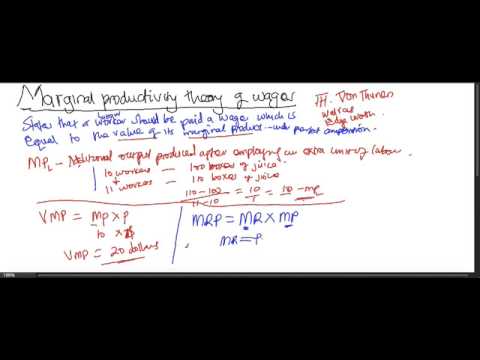 Marginal productivity theory of wages
III. Von Thunen
States that a worker should be paid a wage which is
labour
equal to the value of its marginal product - under perfect competition.
Walras
Edge worth.
MPL - Additional output produced after employing an extra unit of labour
10 workers - 100 boxes of juice.
11 workers - 110 boxes of juice
110 - 100 = 10 = 10 - mp
11 - 10 1
VMP = mp x p
10 x
VMP = 20 dollars
MRP = MR x MP
MR = P
100%